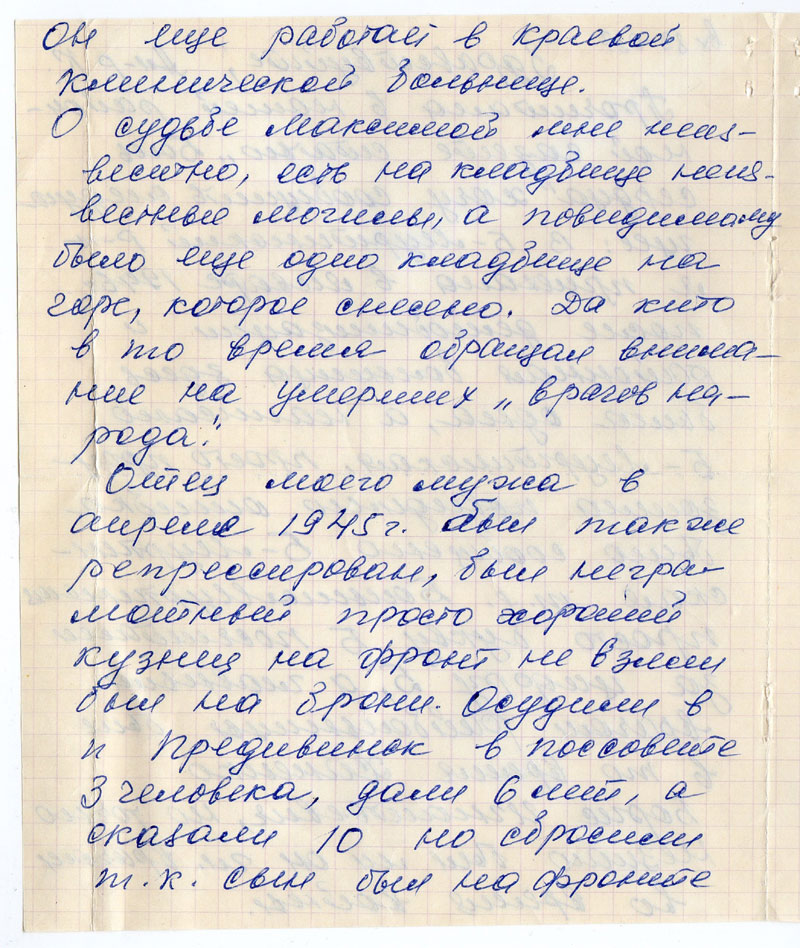 он еще работает в краевой
клинической больнице.
О судьбе Максимой мне неиз-
вестно, есть на кладбище неиз-
вестные могилы, а повидимому
было еще одно кладбище на
горе, которое снесено. Да хкто
в то время обращал внима-
ние на умерших „врагов на-
рода".
Отец моего мужа в
апреле 1945 г. был также
репрессирован, был негра-
мотный просто хороший
кузнец на фронт не взяли
был на брони. Осудили в
п Предивинск в поссовете
3 человека, дали 6 лет, а
сказали 10 но сбросили
т.к. сын был на фронте